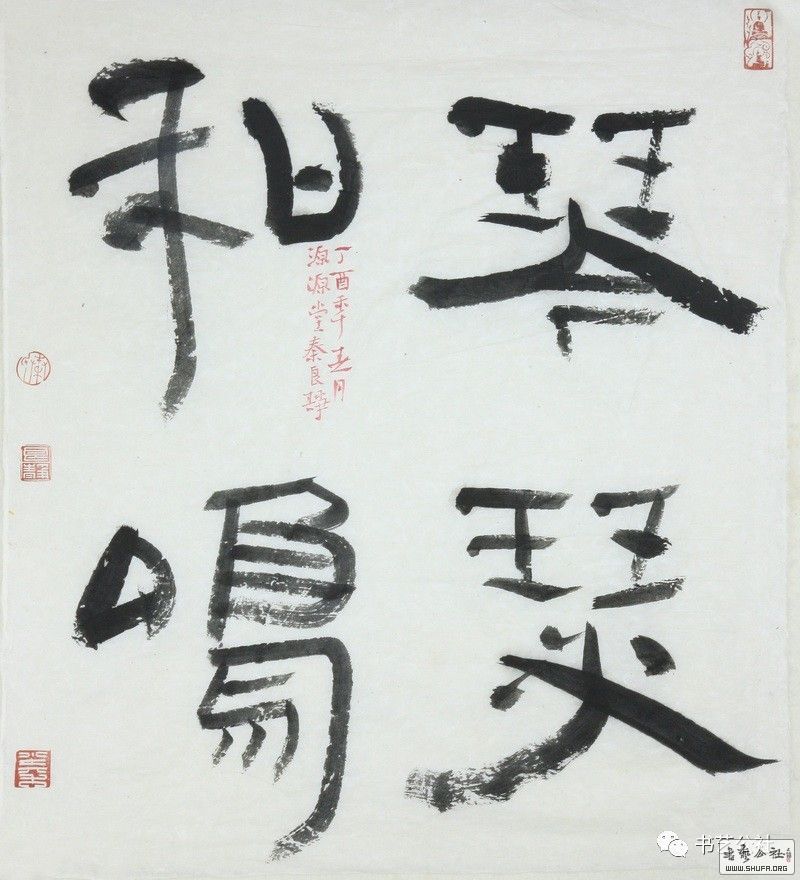 琴瑟
和鸣
丁酉年春月
源源堂秦良
书艺公社
书艺公社
WWW.SHUFA.ORG